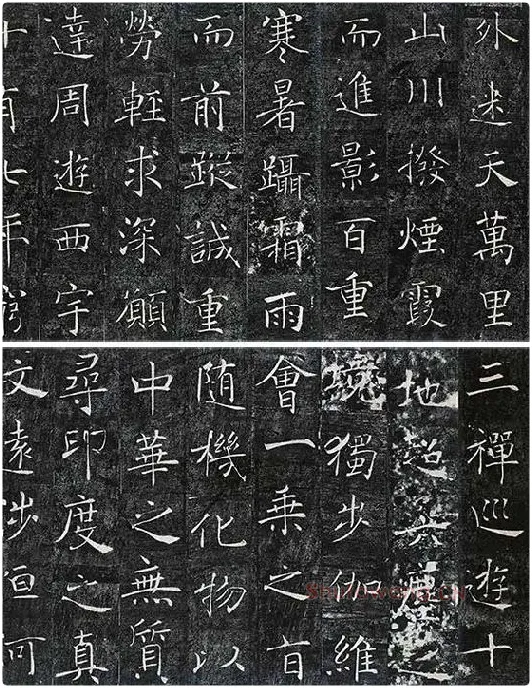 外迷天萬里
山川撥煙霞
而進影百重
寒暑躡霜雨
而前蹤誠重
勞輕求深願
達周遊西宇
十有七年窮
三禪巡遊十
地超六塵之
境獨步伽維
會一乗之旨
随機化物以
中華之無質
尋印度之真
文遠涉恒河